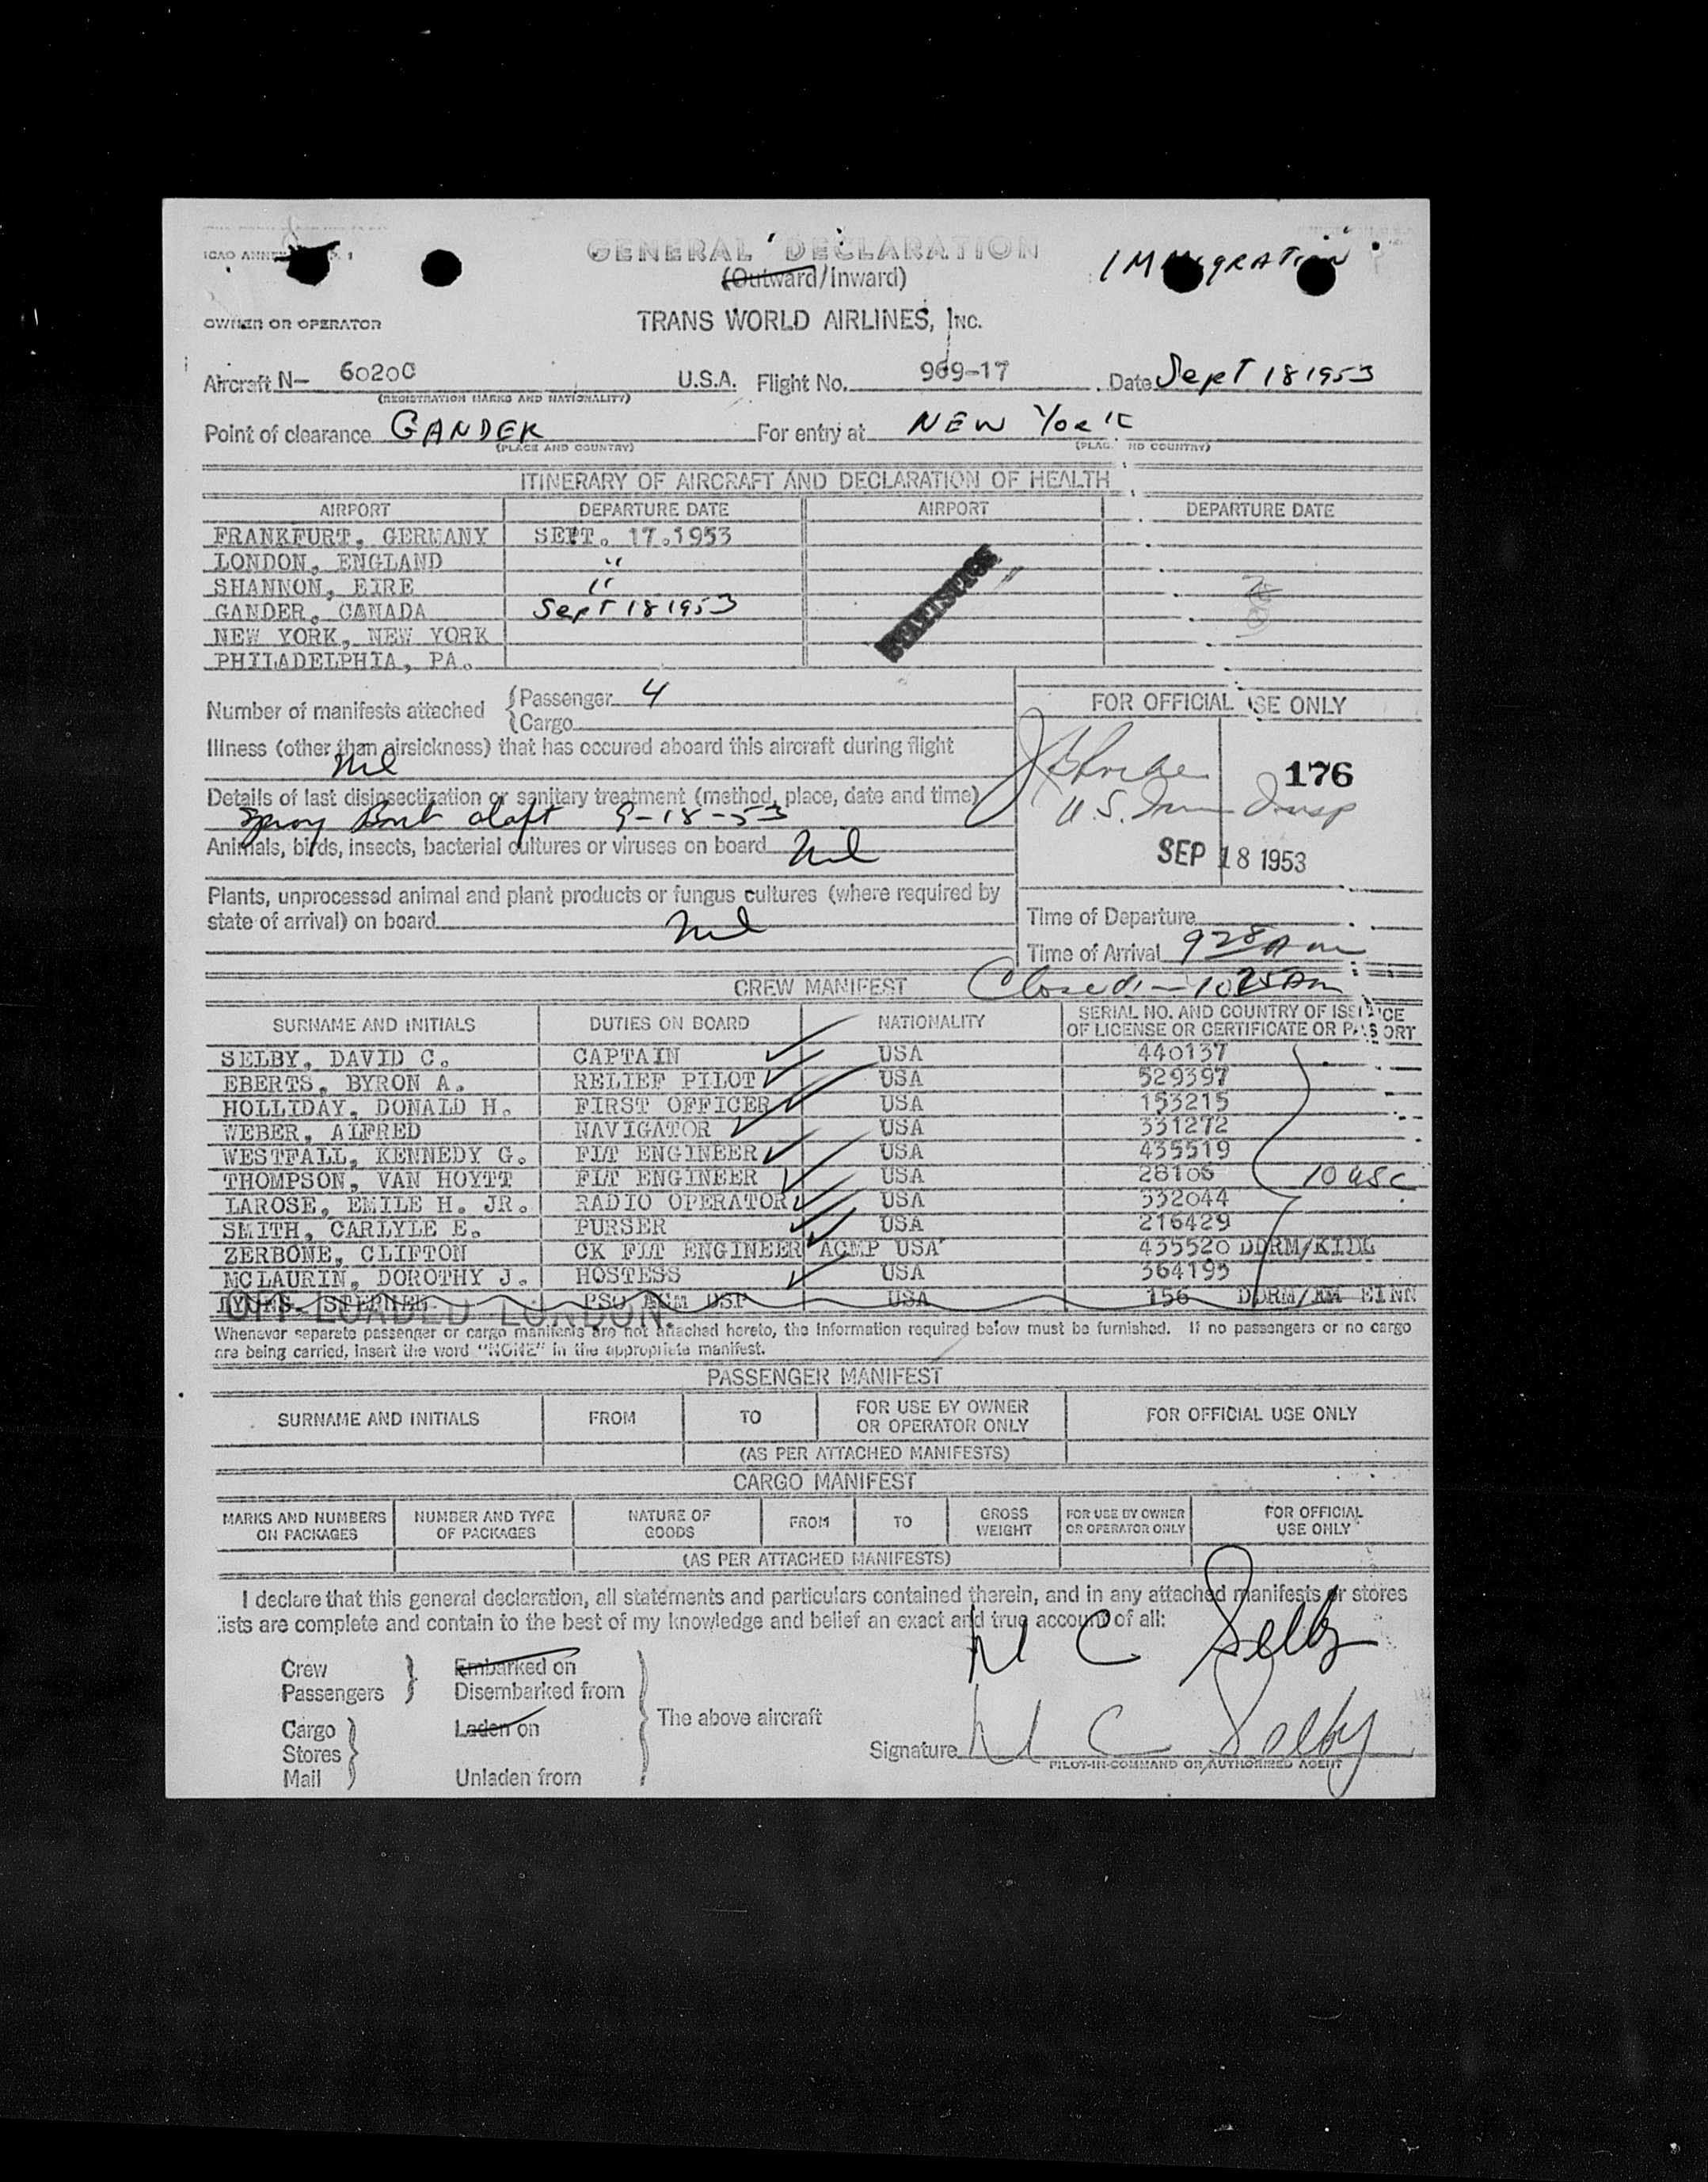 GENERAL DECLARATION
(Outward/Inward)
IMMIGRATION
OWNER OR OPERATOR
TRANS WORLD AIRLINES, INC.
Aircraft N- 6020C U.S.A. Flight No. 969-17 Date Sept 18 1953
(REGISTRATION MARKS AND NATIONALITY)
Point of clearance GANDER For entry at NEW YORK
(PLACE AND COUNTRY)
ITINERARY OF AIRCRAFT AND DECLARATION OF HEALTH
AIRPORT DEPARTURE DATE AIRPORT DEPARTURE DATE
FRANKFURT, GERMANY SEPT. 17.1953
LONDON, ENGLAND "
SHANNON, EIRE "
GANDER, CANADA Sept 18 1953
NEW YORK, NEW YORK
PHILADELPHIA, PA.
STATISTICS
Number of manifests attached Passenger 4
Cargo
FOR OFFICIAL USE ONLY
Illness (other than airsickness) that has occured aboard this aircraft during flight
Nil
176
U.S. Imm Insp
Details of last disinsectization or sanitary treatment (method, place, date and time)
Spray Bomb 9-18-53
Animals, birds, insects, bacterial cultures or viruses on board Nil
SEP 18 1953
Plants, unprocessed animal and plant products or fungus cultures (where required by
state of arrival) on board Nil
Time of Departure
Time of Arrival 928 Am
CREW MANIFEST
Closed - 1025 Am
SURNAME AND INITIALS DUTIES ON BOARD NATIONALITY SERIAL NO. AND COUNTRY OF ISSUANCE
OF LICENSE OR CERTIFICATE OR PASSPORT
SELBY, DAVID C. CAPTAIN USA 440137
EBERTS, BYRON A. RELIEF PILOT USA 529397
HOLLIDAY, DONALD H. FIRST OFFICER USA 153215
WEBER, ALFRED NAVIGATOR USA 331272
WESTFALL, KENNEDY G. FLT ENGINEER USA 435519
THOMPSON, VAN HOYTT FLT ENGINEER USA 28106 10 USC
LAROSE, EMILE H. JR. RADIO OPERATOR USA 332044
SMITH, CARLYLE E. PURSER USA 216429
ZERBONE, CLIFTON CK FLT ENGINEER ACMP USA 435520 DDRM/KIDL
MCLAURIN, DOROTHY J. HOSTESS USA 364195
USA 156 DDRM/
OFF LOADED LONDON.
Whenever separate passenger or cargo manifests are not attached hereto, the information required below must be furnished. If no passengers or no cargo
are being carried, insert the word "NONE" in the appropriate manifest.
PASSENGER MANIFEST
SURNAME AND INITIALS FROM TO FOR USE BY OWNER
OR OPERATOR ONLY FOR OFFICIAL USE ONLY
(AS PER ATTACHED MANIFESTS)
CARGO MANIFEST
MARKS AND NUMBERS
ON PACKAGES NUMBER AND TYPE
OF PACKAGES NATURE OF
GOODS FROM TO GROSS
WEIGHT FOR USE BY OWNER
OR OPERATOR ONLY FOR OFFICIAL
USE ONLY
(AS PER ATTACHED MANIFESTS)
I declare that this general declaration, all statements and particulars contained therein, and in any attached manifests or stores
lists are complete and contain to the best of my knowledge and belief an exact and true account of all:
C Selby
Crew Embarked on
Passengers Disembarked from
Cargo Laden on The above aircraft
Stores
Mail Unladen from
Signature C Selby
PILOT-IN-COMMAND OR AUTHORIZED AGENT